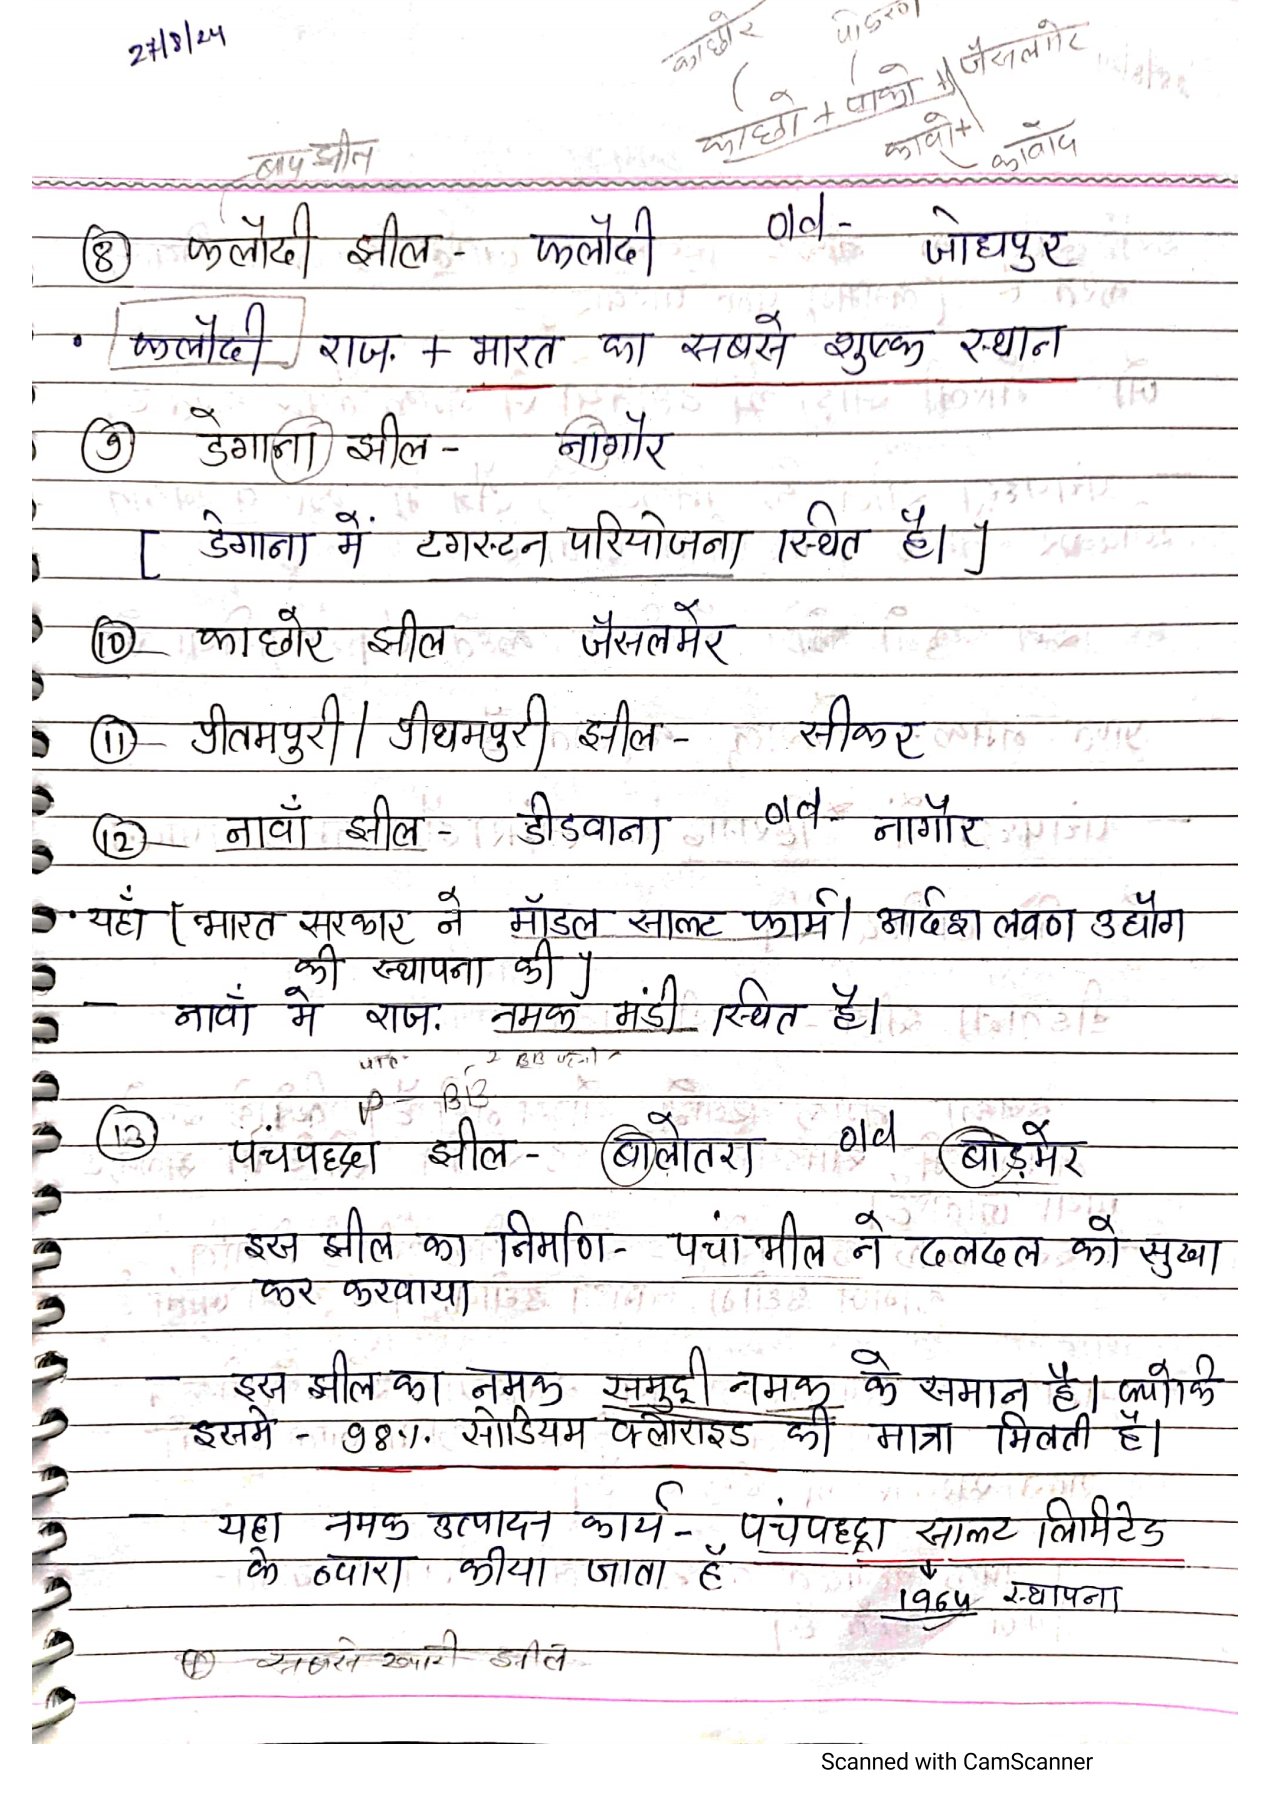 27/8/24
काछोर पोकरण
काछो + पोको + जैसलमेर
कावो + कावोद
बाप झील
⑧ फलौदी झील - फलौदी old - जोधपुर
• फलौदी राज. + भारत का सबसे शुष्क स्थान
⑨ डेगाना झील - नागौर
[ डेगाना में टगस्टन परियोजना स्थित है। ]
⑩ काछोर झील जैसलमेर
⑪ प्रीतमपुरी / प्रीथमपुरी झील - सीकर
⑫ नावाँ झील - डीडवाना old - नागौर
• यहाँ [ भारत सरकार ने मॉडल साल्ट फार्म / आर्दश लवण उद्यौग
की स्थापना की ]
- नावाँ मे राज. नमक मंडी स्थित है।
P - BB
⑬ पंचपद्रा झील - बालोतरा old बाड़मेर
इस झील का निर्माण - पंचा भील ने दलदल को सुखा
कर करवाया
- इस झील का नमक समुद्री नमक के समान है। क्योकि
इसमे - 98%. सोडियम क्लोराइड की मात्रा मिलती है।
- यहा नमक उत्पादन कार्य - पंचपद्रा साल्ट लिमिटेड
के द्वारा कीया जाता है
1964 स्थापना
सबसे खारी झील
Scanned with CamScanner